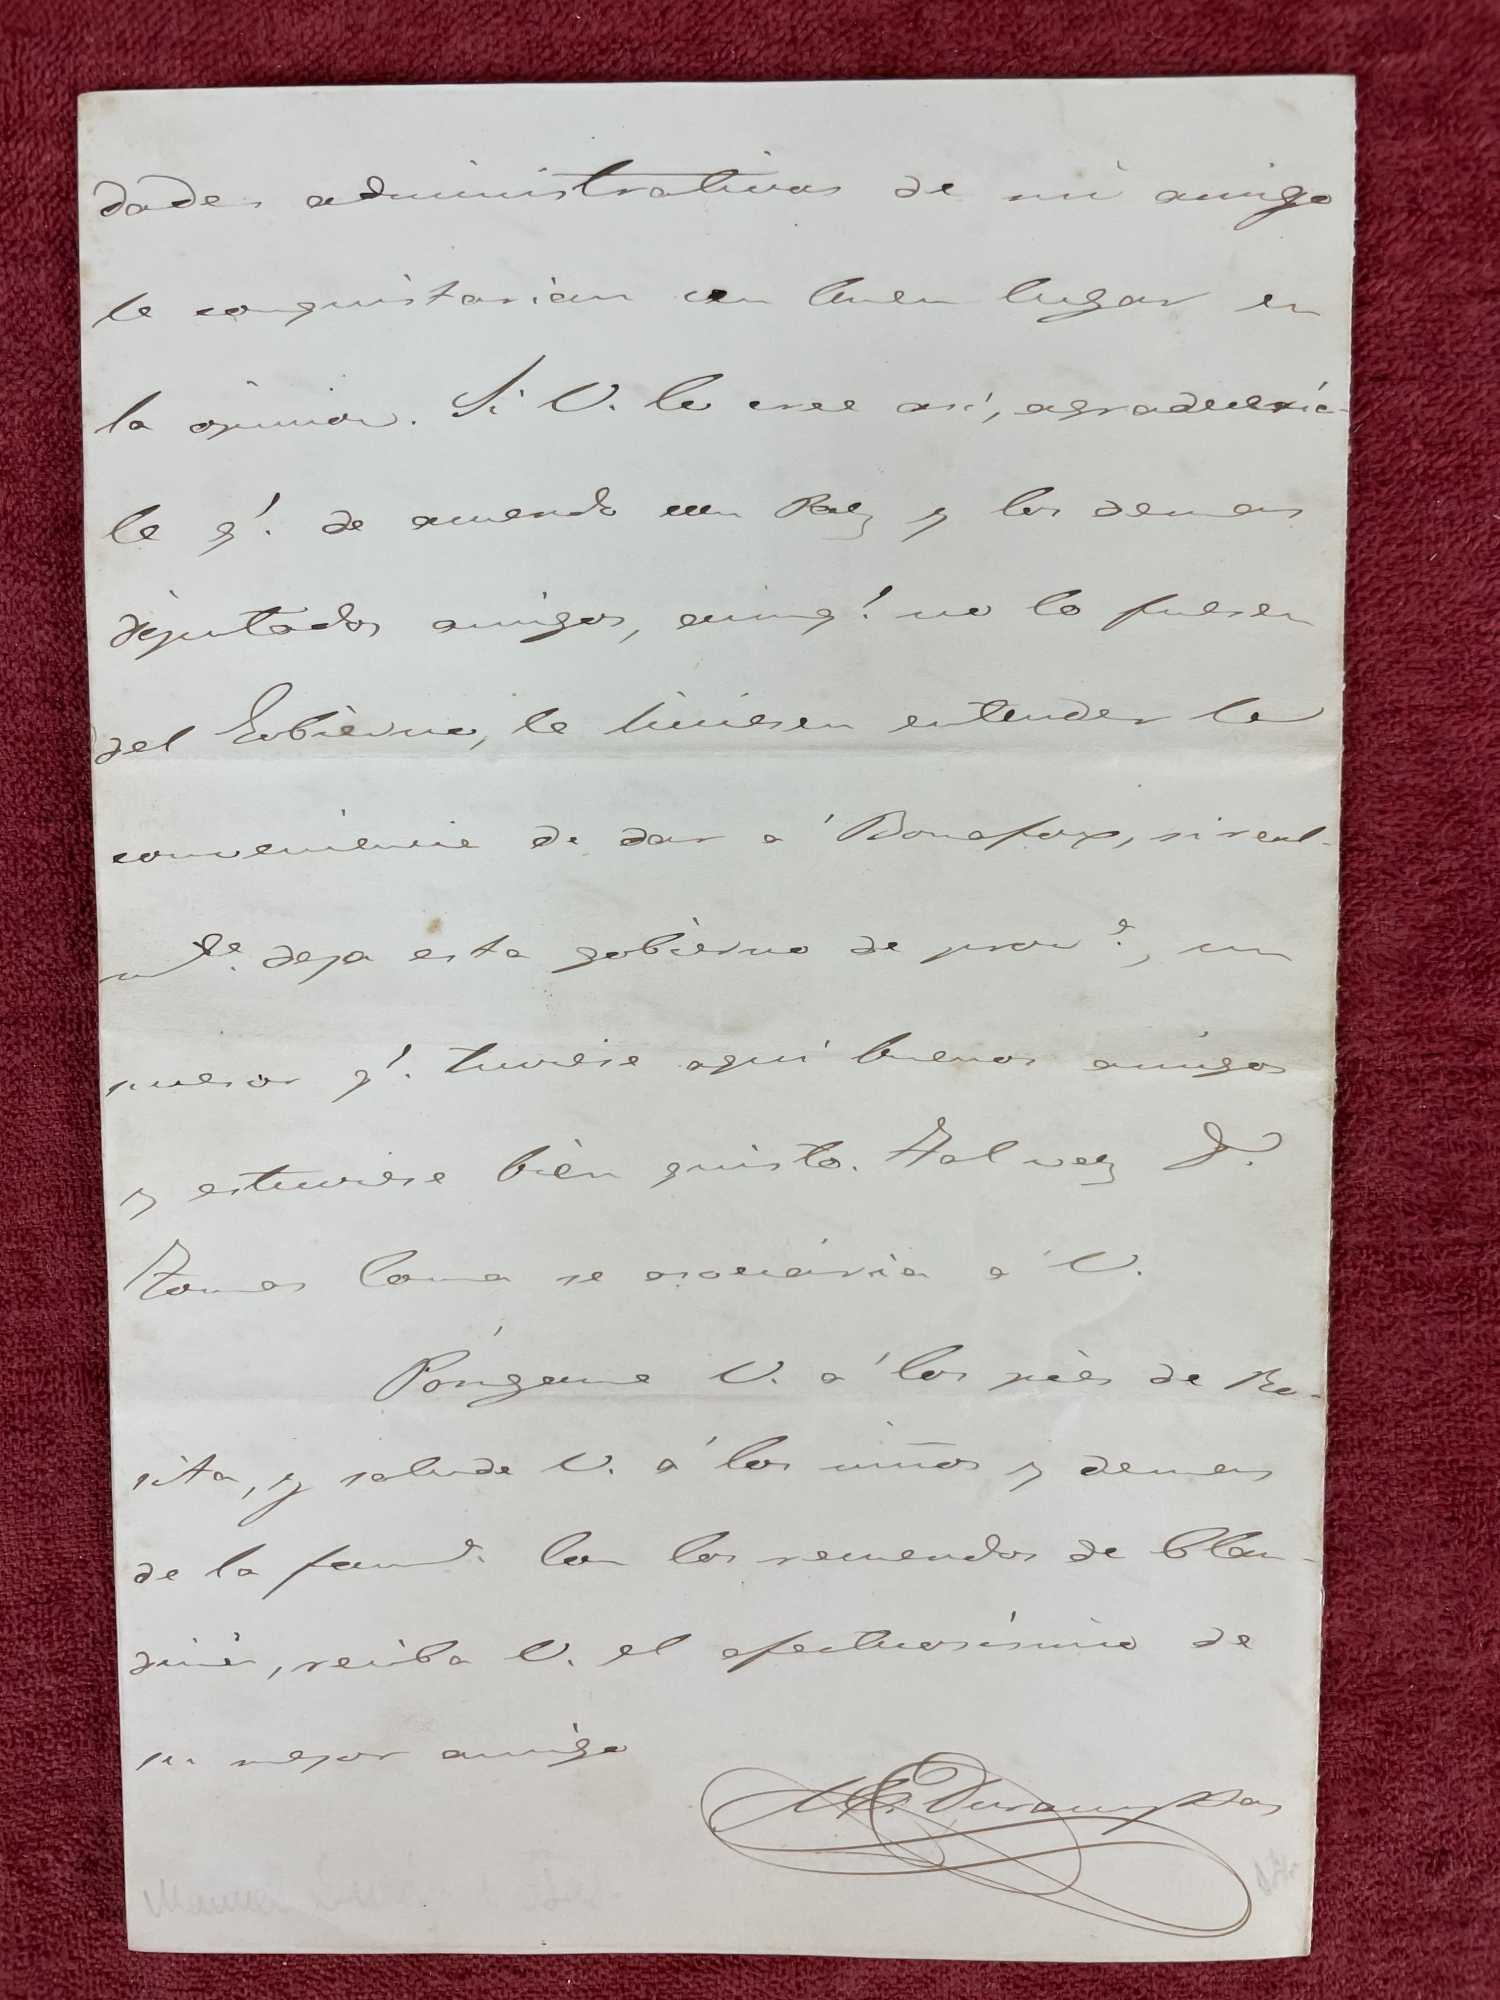 dades administrativas de mi amigo
le conquistarian un buen lugar en
la opinion. Si V. lo cree así, agradeceria-
le q.e de acuerdo con Paz y los demas
diputados amigos, aunq.e no lo fuesen
del Gobierno, le hiciesen entender la
conveniencia de dar á Bonafox, si real-
m.te deja este gobierno de prov.a, un
sucesor q.e tuviese aquí buenos amigos
y estuviese bien quisto. Tal vez D.
Tomas se asociaria á V.
Póngame V. á los piés de Ro-
sita, y salude V. á los niños y demas
de la fam.a Con los recuerdos de Clau-
dina, reciba V. el afectuosísimo de
su mejor amigo
Manuel